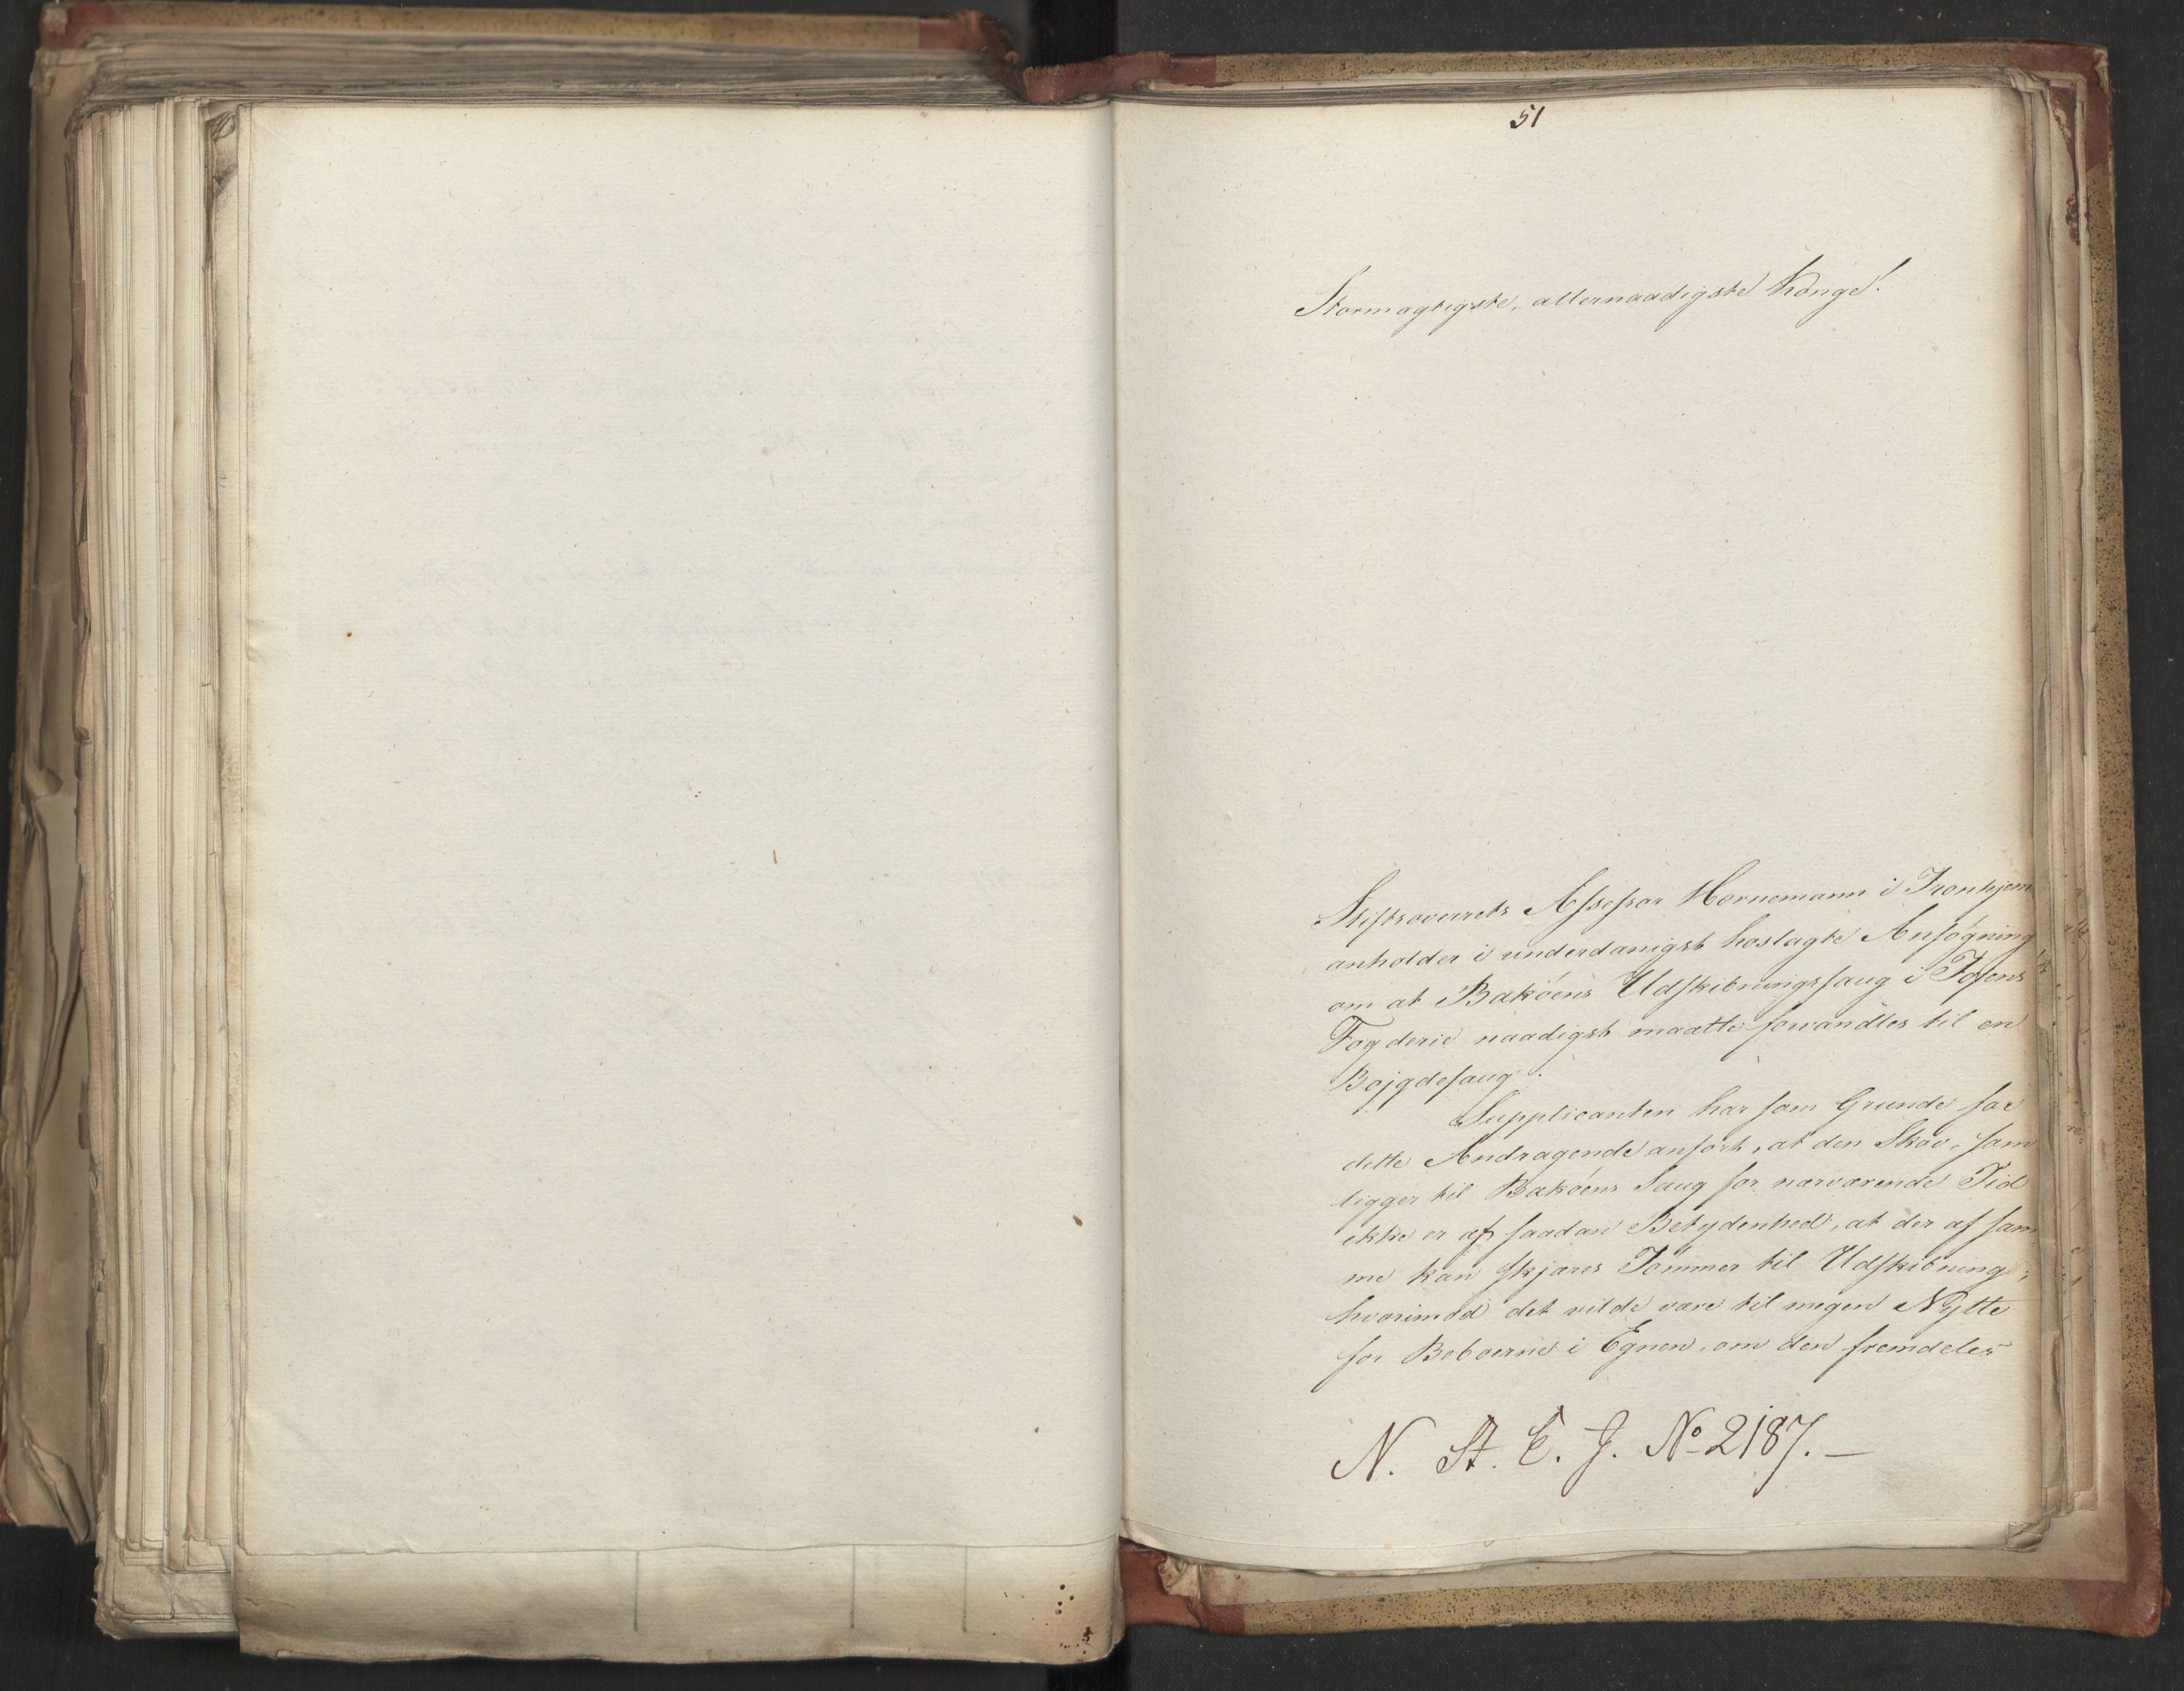 51
Stormægtigste, allernaadigste Konge!
Stiftsoverrets Assessor Hornemann i Tronhjem
anholder i underdanigst hoslagte Ansøgning
om at Bakøens Udskibningssaug i Fosens
Fogderie naadigst maatte forvandles til en
Bøjgdesaug.
Supplicanten har som Grunde for
dette Andragende anført, at den Skov, som
ligger til Bakøens Saug for nærværende Tid
ikke er af saadan Betydenhed, at der af sam
me kan skjæres Tømmer til Udskibning,
hvorimod det vilde være til megen Nytte
for Beboerne i Egnen, om den fremdeles
N. St. C. J. No 2187.-